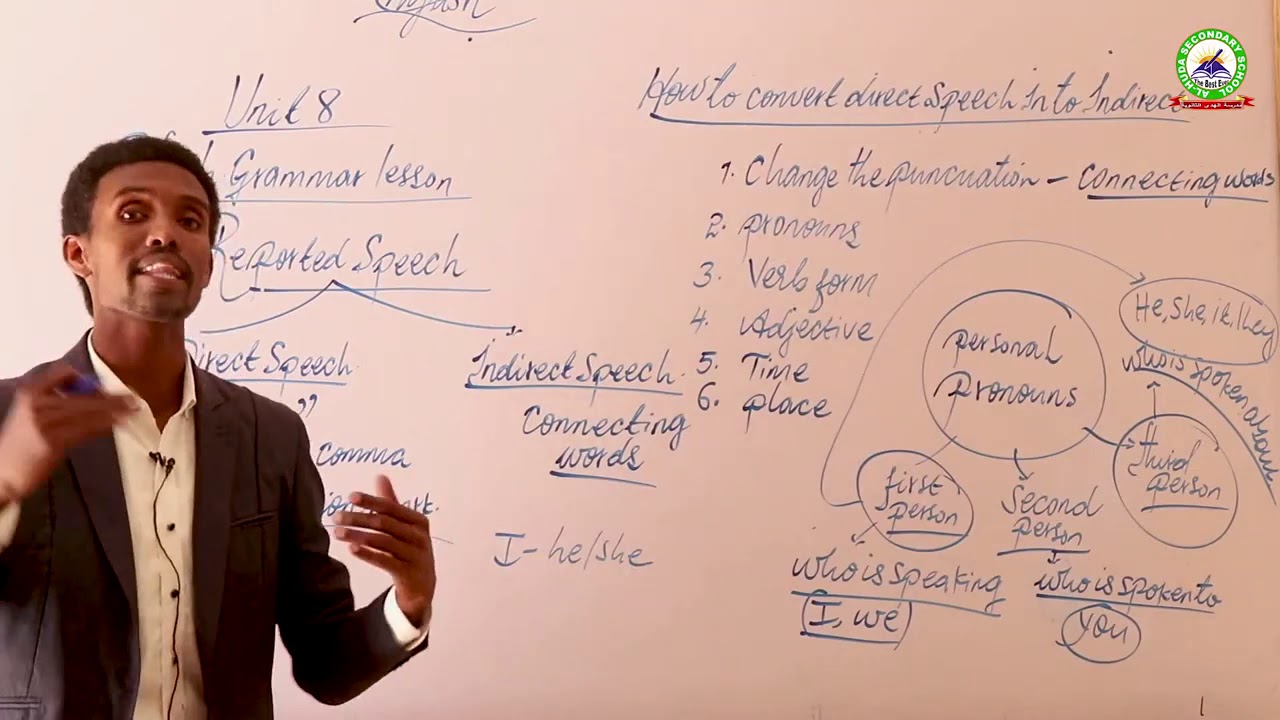 English
Unit 8
Grammar lesson
Reported Speech
Direct Speech
”
comma
Indirect Speech
Connecting
words
I - he/she
How to convert direct Speech Into Indirect
1. Change the puncuation - connecting words
2. pronouns
3. Verb form
4. Adjective
5. Time
6. place
personal
pronouns
first
person
who is speaking
I, we
Second
person
who is spoken to
you
third
person
who is spoken about
He, She, it, they
AL-HUDA SECONDARY SCHOOL
The Best Ever
مدرسة الهدى الثانوية